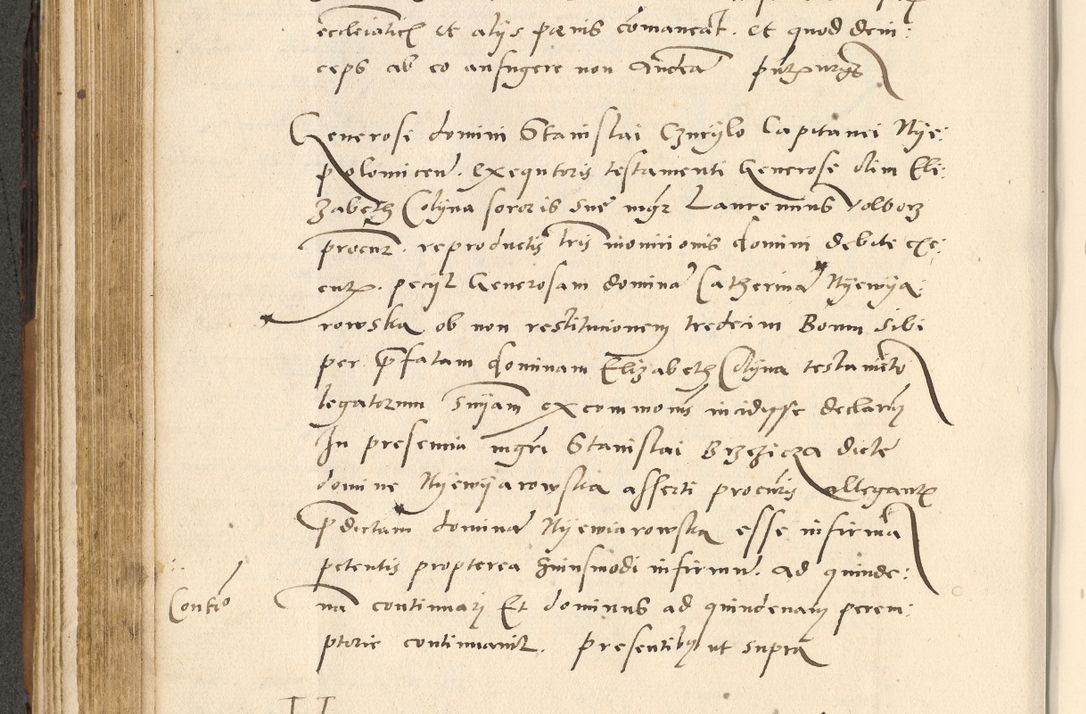 ecclesiasticis et alijs penis comaneat. et quod dein:
ceps ab eo aufugere non audeat
Generosi domini Stanislai Czuryło Capitanei Nye:
polomicen. Exequtoris testamenti Generose olim Eli:
zabeth Colyna sororis sue mgr Laurentius Volborz
procur. reproductis lris monitionis domini debite exe:
cut. petijt Generosam domina Catherina Nyewya:
rowska ob non restitutionem tredecim Boum sibi
per prefatam dominam Elizabeth Colyna testamento
legatorum sniam excommonis incidysse declarary
In presentia mgri Stanislai Brzezicza dicte
domine Nyewyarowska asserti procuris allegants
predictam domina Nyewiarowska esse infirma
petentis propterea huiusmodi infirmit. ad quinde:
Contio
na continuari Et dominus ad quindenam perem:
ptorie continuavit. Presentibus ut supra